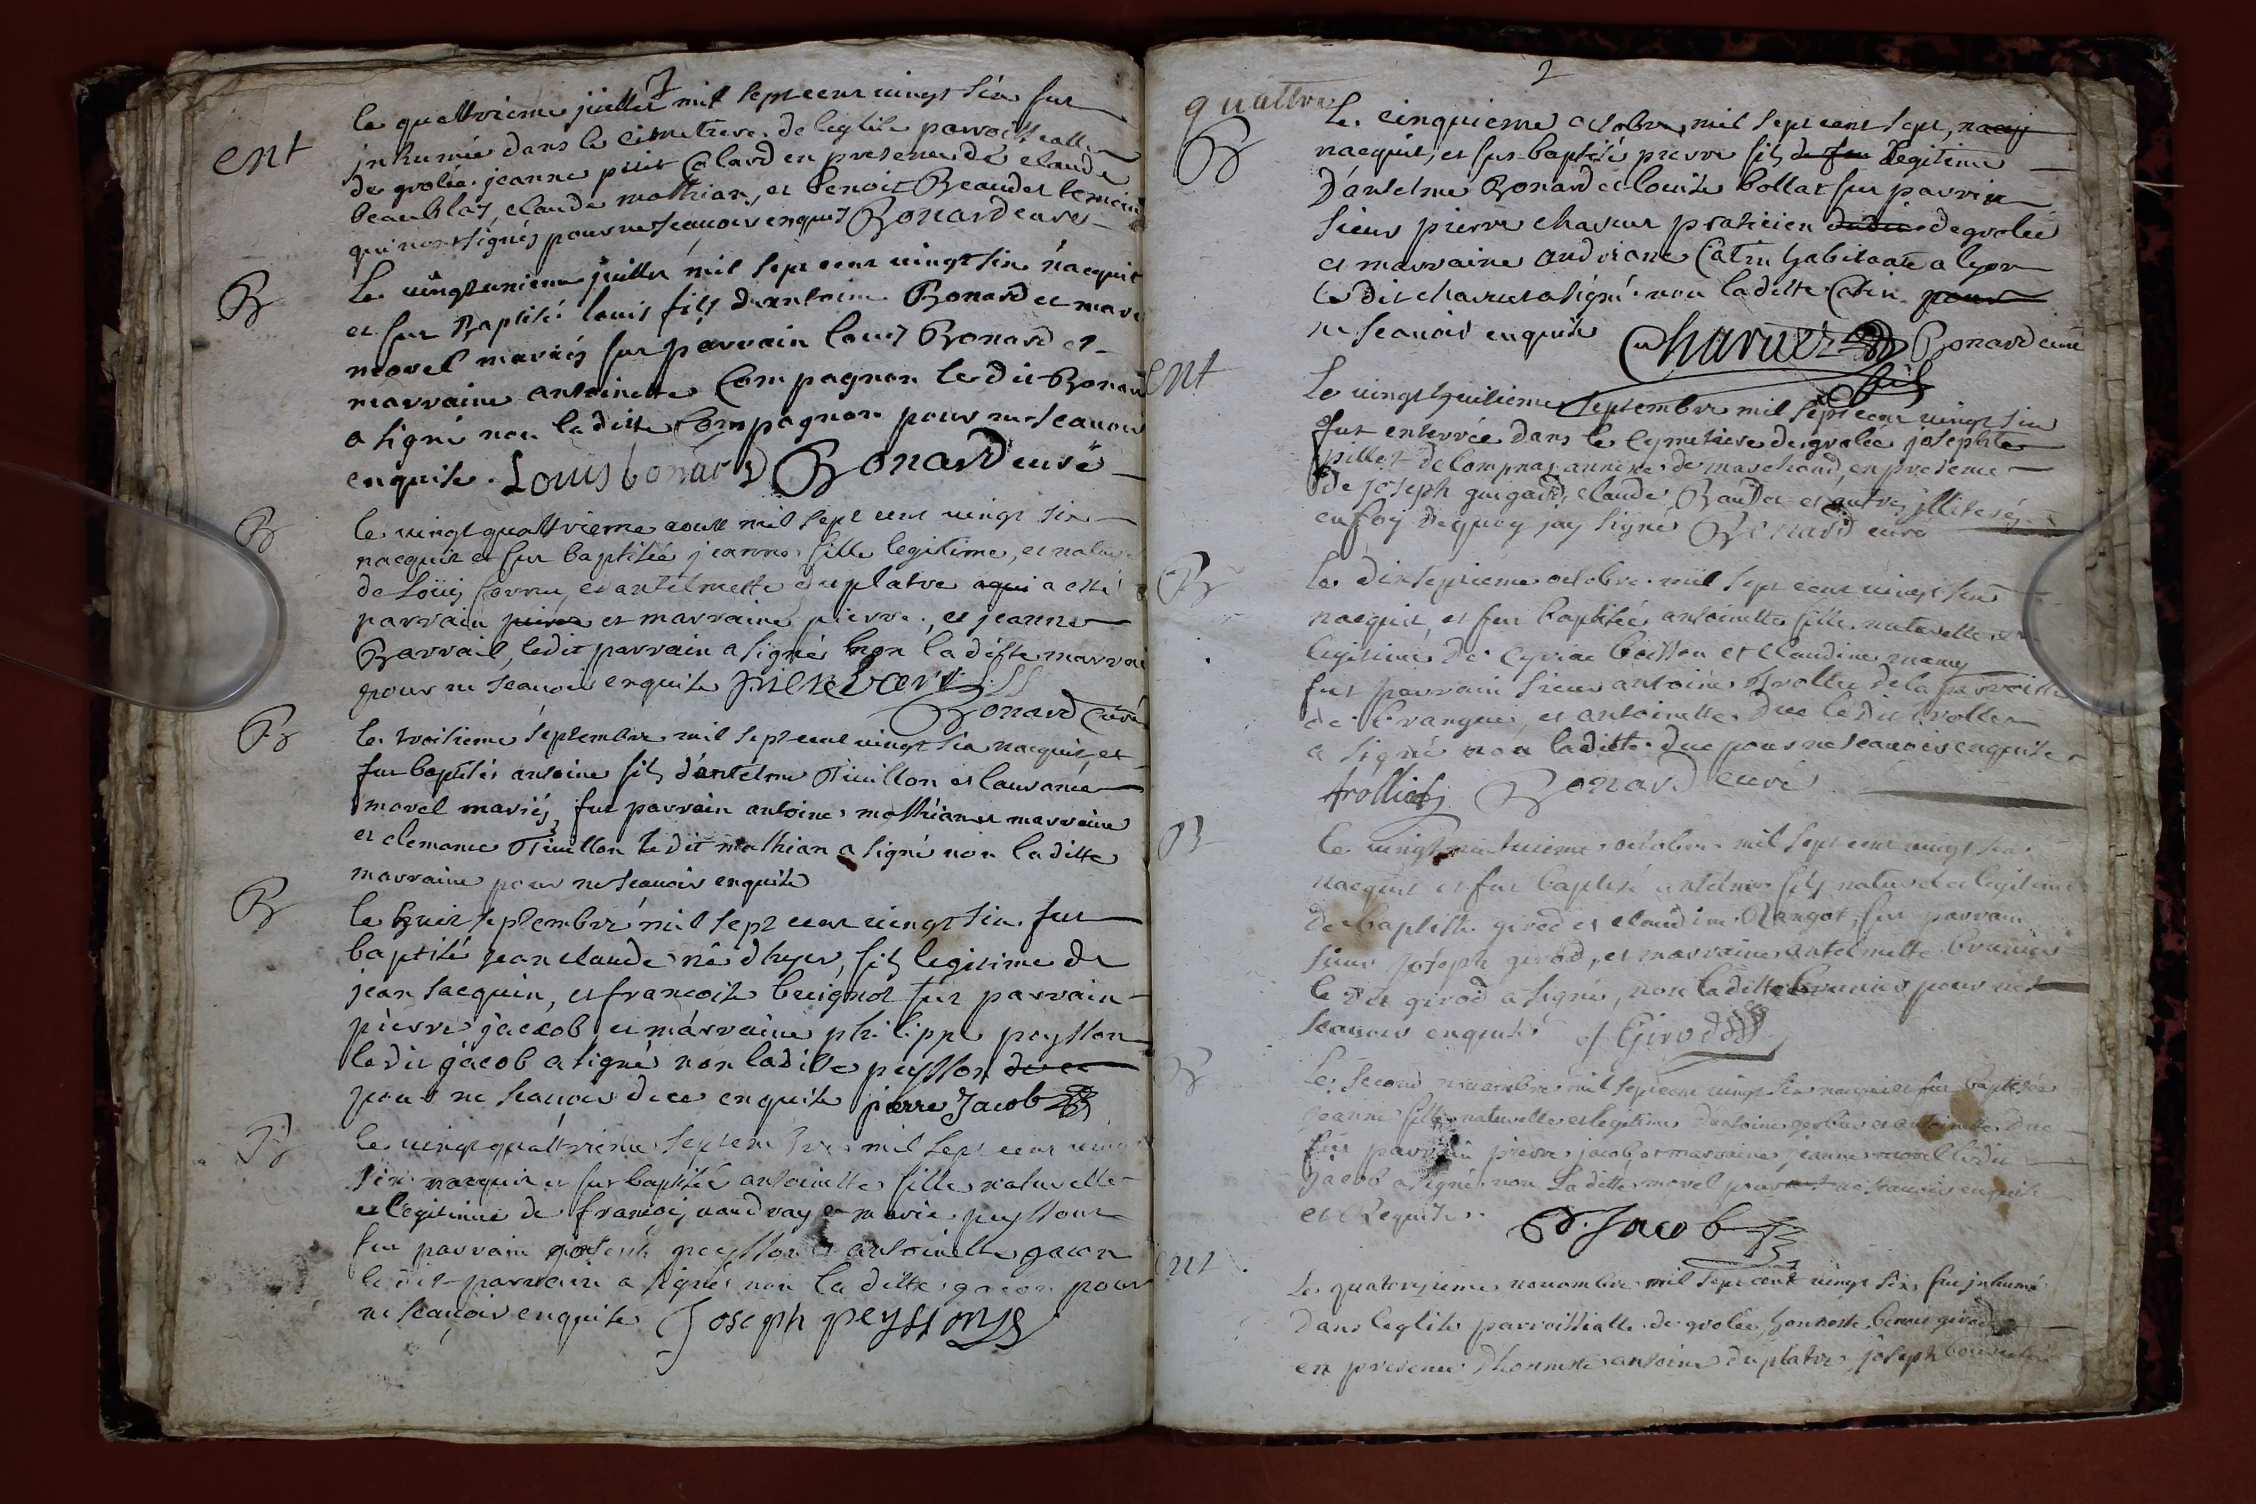 ent
le quattrieme juillet mil sept cent vingt six fut
inhumée dans le cimetiere de leglise parroissialle
de grolée jeanne petit Colard en presence de claude
beaublay, claude mathian, et benoit Beaudet temoin
qui nont signés pour ne scauoir enquis Bonard curé
B
Le vingtunieme juillet mil sept cent vingt six nacquit
et fut Baptisé louis fils dantoine Bonard et marie
morel mariés fut parrain louis Bonard et
marraine antoinette Compagnon ledit Bonard
a signé non laditte Compagnon pour ne scauoir
enquise. Louis bonard Bonard curé
B
le vingt quattrieme aoust mil sept cent vingt six
nacquit et fut baptisée jeanne fille legitime, et natur
de Loüis et antelmette duplatre aqui a esté
parrain pierre et marraine pierre, et jeanne
Barrail, ledit parrain a signé non la ditte marrai
pour ne scauoir enquise
Bonard Curé
B
le troisieme septembre mil sept cent vingt six nacquit, et
fut baptisé antoine fils d'antelme Tiuillon et laurance
morel mariés, fut parrain antoine mathian et marraine
et clemance Tiuillon le dit mathian a signé non laditte
marraine pour ne scauoir enquise
B
le huit septembre mil sept cent vingt six fut
baptisé jean claude né dhyer, fils legitime de
jean jacquin, et francoise buignot fut parrain
pierre jacob et marraine philippe peysson
le dit jacob a signé non laditte peysson
pour ne scauoir de ce enquise pierre Jacob
B
le vingt quattrieme septembre mil sept cent vingt
six nacquit et fut baptisée antoinette fille naturelle
et legitime de francois vaudray et marie peysson
fut parrain joseph peysson et antoinette gacon
le dit parrain a signé non la ditte gacon pour
ne scauoir enquise Joseph peysson
2
quattre
B
Le cinquieme octobre mil sept cent sept, nacq
nacquit, et fut baptisé pierre fils legitime
D'antelme Bonard et louise bollat fut parrain
sieur pierre charuet praticien de grolée
et marraine andriane Catin habitante a lyon
le dit charuet a signé non laditte Catin pour
ne scauoir enquise Charuet Bonard curé
fils
ent
Le vingt huitieme septembre mil sept cent vingt six
fut enterrée dans le Cymetiere de grolée josephte
pillet de lompnas annexe de marchand, en presence
de joseph guigard, claude Baudet et autres illiterés
en foy dequoy jay signé Bonard curé
B
le dixseptieme octobre mil sept cent vingt six
nacquit, et fut baptisée antoinette fille naturelle et
legitime de Cyriae boisson et claudine mamy
fut parrain sieur antoine trollier de la parroisse
de brangue, et antoinette Duc le dit trollier
a signé non laditte duc pour ne scauoir enquise
trollier Bonard curé
B
le vingt octobre mil sept cent vingt six
nacquit et fut baptisé antelme fils naturel et legitime
de baptiste girod et claudine Mangot, fut parrain
sieur joseph girod, et marraine antelmette brunier
le dit girod a signé, non laditte brunier pour ne
scauoir enquise J Girod
B
Le second nouembre mil sept cent vingt six nacquit et fut baptisée
jeanne fille naturelle et legitime dantoine et antoinette Duc
fut parrain pierre jacob, et marraine jeanne morel ledit
jacob a signé non laditte morel pour ne scauoir enquise
et Requise. P. Jacob
ent
Le quatorzieme nouembre mil sept cent vingt six fut inhumé
dans leglise parroissialle de grolée honneste benoit girod
en presence dhonneste antoine duplatre, joseph